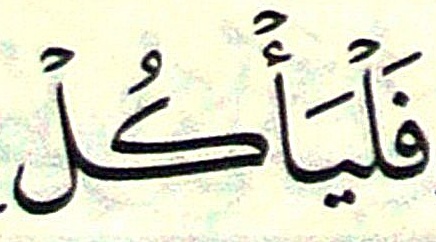 فَلْيَأْكُلْ